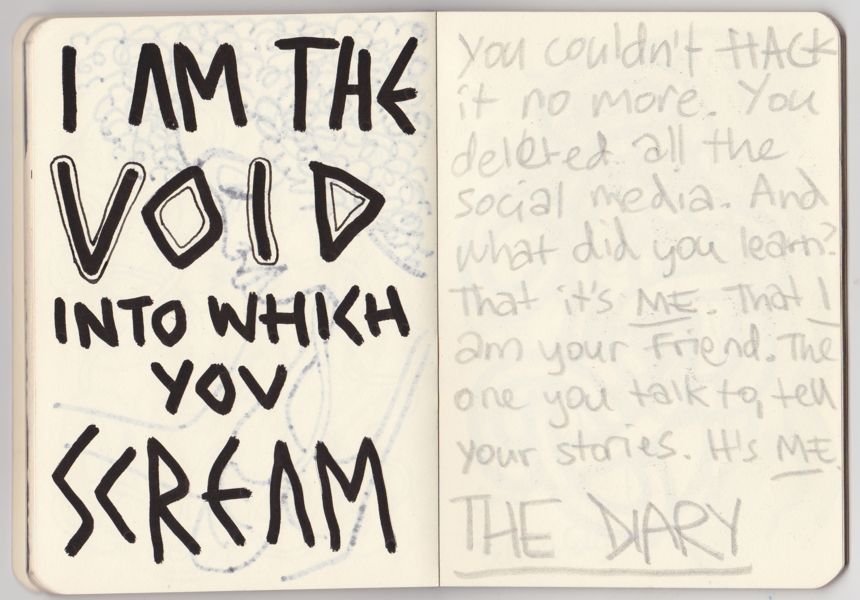 I AM THE
VOID
INTO WHICH
YOU
SCREAM
You couldn't HACK
it no more. You
deleted all the
social media. And
what did you learn?
That it's ME. That I
am your friend. The
one you talk to, tell
your stories. It's ME.
THE DIARY